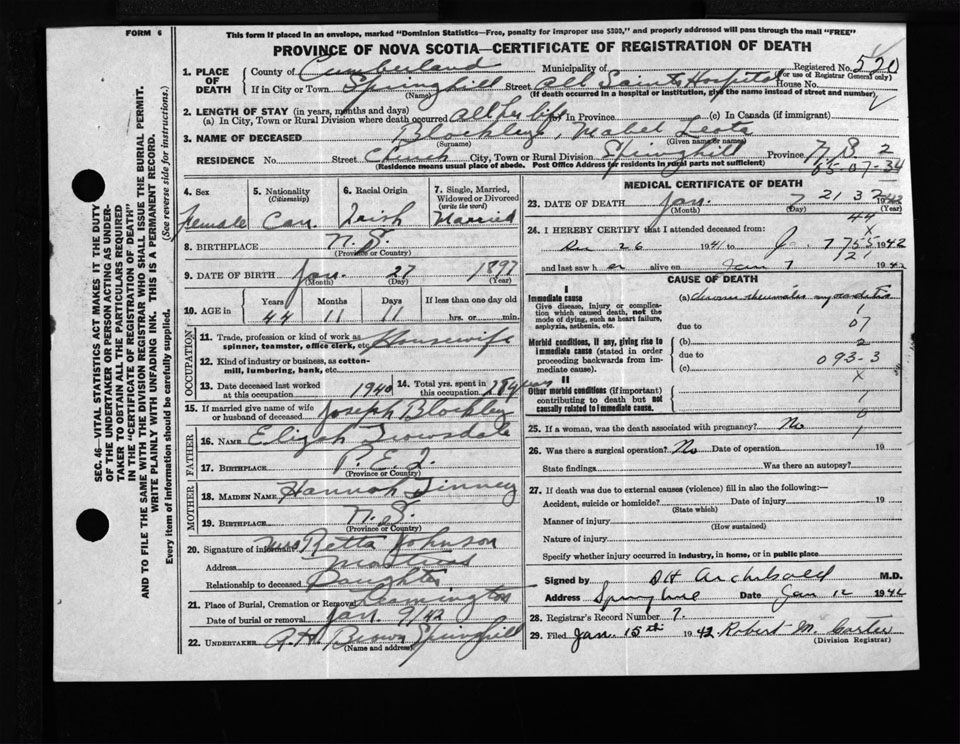 FORM 6
This form if placed in an envelope, marked "Dominion Statistics—Free, penalty for improper use $300," and properly addressed will pass through the mail "FREE"
PROVINCE OF NOVA SCOTIA—CERTIFICATE OF REGISTRATION OF DEATH
1. PLACE OF DEATH
County of Cumberland Municipality of Registered No. 520
(For use of Registrar General only)
If in City or Town Springhill Street All Saints Hospital House No.
(Name) (If death occurred in a hospital or institution, give the name instead of street and number)
2. LENGTH OF STAY (in years, months and days)
(a) In City, Town or Rural Division where death occurred all her life (b) In Province (c) In Canada (if immigrant)
3. NAME OF DECEASED Blockley, Mabel Leota
(Surname) (Given name or names)
RESIDENCE No. Street City, Town or Rural Division Springhill Province
(Residence means usual place of abode. Post Office Address for residents in rural parts not sufficient)
65-07-34
4. Sex Female
5. Nationality (Citizenship) Can
6. Racial Origin Irish
7. Single, Married, Widowed or Divorced (write the word) Married
8. BIRTHPLACE N.S.
(Province or Country)
9. DATE OF BIRTH Jan. 27 1897
(Month) (Day) (Year)
10. AGE in Years 44 Months 11 Days 11 If less than one day old hrs. or min.
OCCUPATION
11. Trade, profession or kind of work as spinner, teamster, office clerk, etc. Housewife
12. Kind of industry or business, as cotton-mill, lumbering, bank, etc.
13. Date deceased last worked at this occupation 1940
14. Total yrs. spent in this occupation 28 years
15. If married give name of wife or husband of deceased Joseph Blockley
FATHER
16. NAME Elijah Trowsdale
17. BIRTHPLACE P.E.I.
(Province or Country)
MOTHER
18. MAIDEN NAME Hannah
19. BIRTHPLACE N.S.
(Province or Country)
20. Signature of informant Mrs Retta Johnson
Address
Relationship to deceased Daughter
21. Place of Burial, Cremation or Removal Leamington
Date of burial or removal Jan. 9/42
22. UNDERTAKER A.H. Brown Springhill
(Name and address)
MEDICAL CERTIFICATE OF DEATH
23. DATE OF DEATH Jan. 7
(Month) (Day) (Year)
24. I HEREBY CERTIFY that I attended deceased from:
Dec 26 1941 to 7 1942
and last saw her alive on Jan 7 1942
CAUSE OF DEATH
I
Immediate cause
Give disease, injury or complication which caused death, not the mode of dying, such as heart failure, asphyxia, asthenia, etc.
(a) Chronic rheumatic myocarditis
due to
07
Morbid conditions, if any, giving rise to immediate cause (stated in order proceeding backwards from immediate cause).
(b)
due to
(c)
093-3
II
Other morbid conditions (if important) contributing to death but not causally related to immediate cause.
25. If a woman, was the death associated with pregnancy? No
26. Was there a surgical operation? No Date of operation 19
State findings Was there an autopsy?
27. If death was due to external causes (violence) fill in also the following:—
Accident, suicide or homicide? Date of injury 19
(State which)
Manner of injury
(How sustained)
Nature of injury
Specify whether injury occurred in industry, in home, or in public place
Signed by DH Archibald M.D.
Address Springhill Date Jan 12 1942
28. Registrar's Record Number 7.
29. Filed Jan. 15th 1942 Robert M. Carter
(Division Registrar)
SEC. 46—VITAL STATISTICS ACT MAKES IT THE DUTY
OF THE UNDERTAKER OR PERSON ACTING AS UNDERTAKER TO OBTAIN ALL THE PARTICULARS REQUIRED
IN THE "CERTIFICATE OF REGISTRATION OF DEATH"
AND TO FILE THE SAME WITH THE DIVISION REGISTRAR WHO SHALL ISSUE THE BURIAL PERMIT.
WRITE PLAINLY WITH UNFADING INK. THIS IS A PERMANENT RECORD.
Every item of information should be carefully supplied. (See reverse side for instructions.)